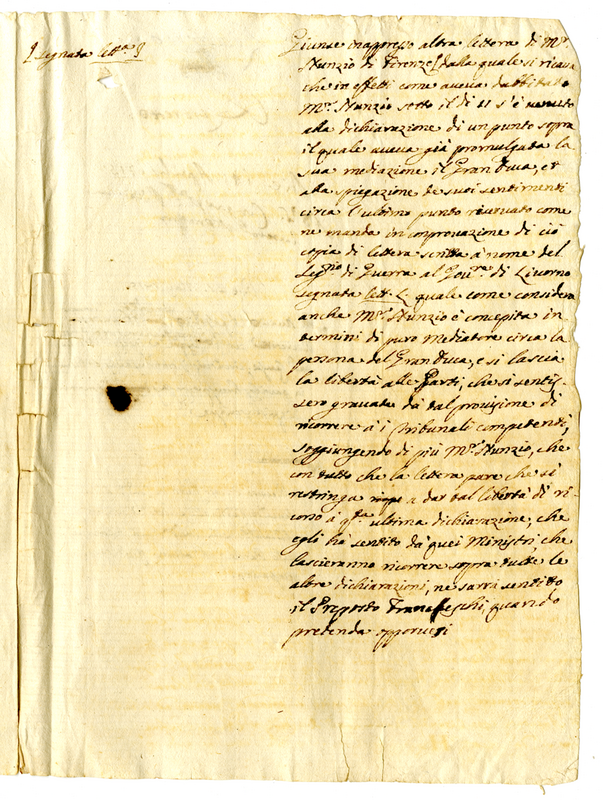 segnata lett.a
Giunse inappresso altra lettera di Mr.
Nunzio di Firenze dalla quale si ricava
che in effetti come aveva dubbitato
Mr. Nunzio sotto il dì 11 s'è venuto
alla dichiarazione di un punto sopra
il quale aveva già promulgata la
sua mediazione il Gran Duca, et
alla spiegazione de suoi sentimenti
circa l'ultimo punto riservato come
ne manda in comprovazione di ciò
copia di lettera scritta à nome del
di Guerra al Gov.re di Livorno
segnata lett. L quale come considera
anche Mr. Nunzio è concepita in
termini di puro Mediatore circa la
persona del Gran Duca, e si lascia
la libertà alle Parti, che si sentis-
sero gravate da tal provisione di
ricorrere à i Tribunali competenti,
soggiungendo di più Mr. Nunzio, che
con tutto che la lettera pare che si
restringa a dar tal libertà di ri-
corso à q.ta ultima dichiarazione, che
egli hà sentito dà quei Ministri, che
lascieranno ricorrere sopra tutte le
altre dichiarazioni, ne sarà sentito
il Preposto Franceschi, quando
pretenda opporvisi